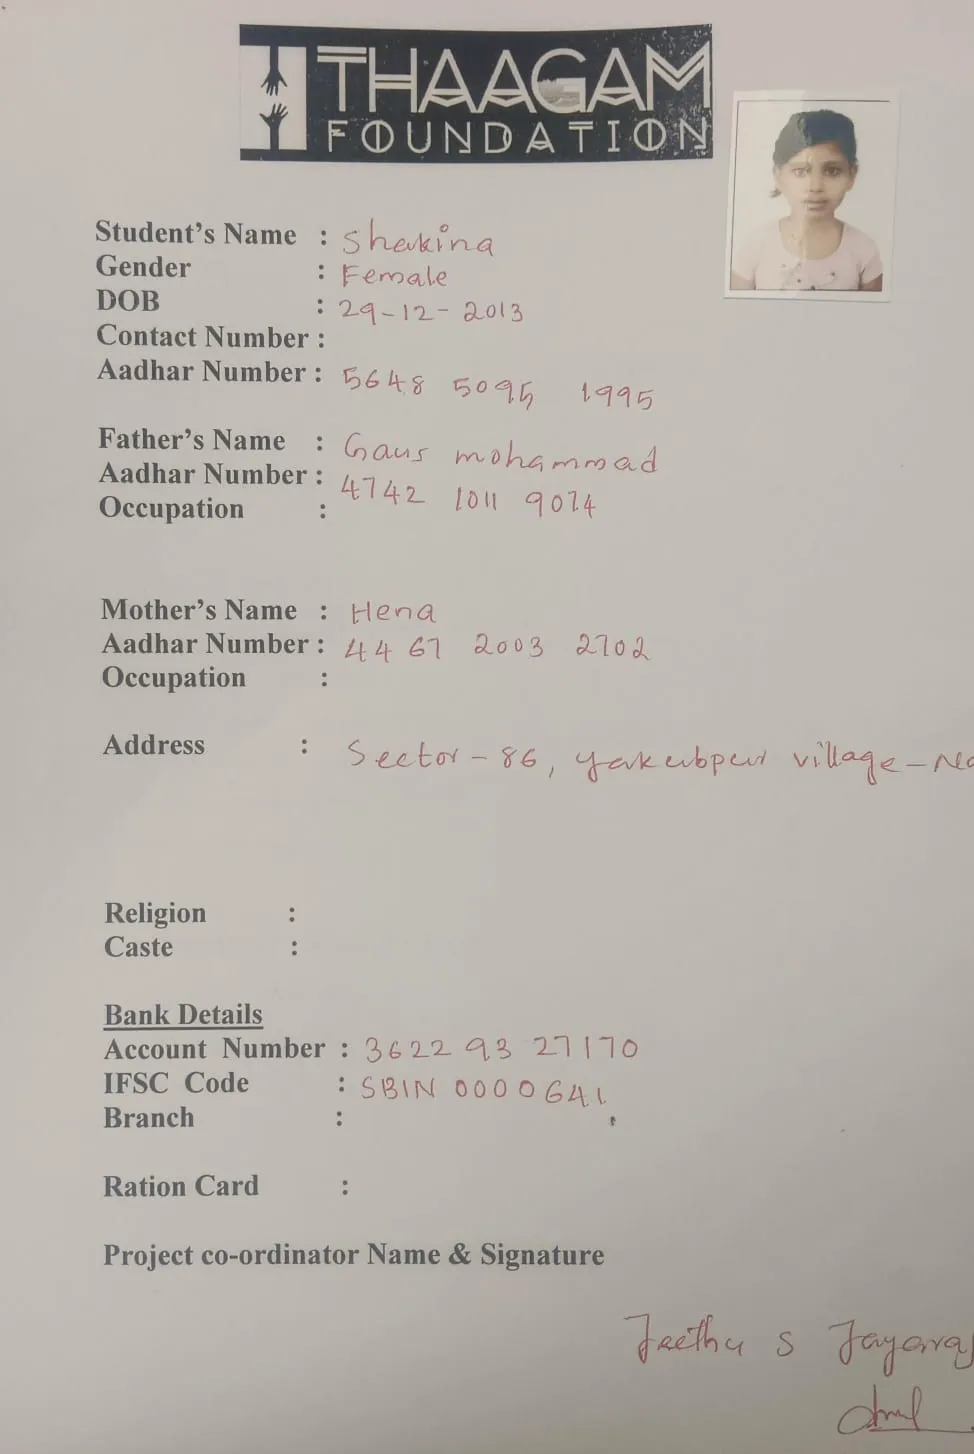 THAAGAM
FOUNDATION
Student's Name : Shakina
Gender : Female
DOB : 29-12-2013
Contact Number :
Aadhar Number : 5648 5095 1995
Father's Name : Gaus mohammad
Aadhar Number : 4742 1011 9074
Occupation :
Mother's Name : Hena
Aadhar Number : 4467 2003 2702
Occupation :
Address : Sector - 86, Yakubpur village - No
Religion :
Caste :
Bank Details
Account Number : 3622 93 27170
IFSC Code : SBIN 0000641
Branch :
Ration Card :
Project co-ordinator Name & Signature
Jeethu S Jayaraj